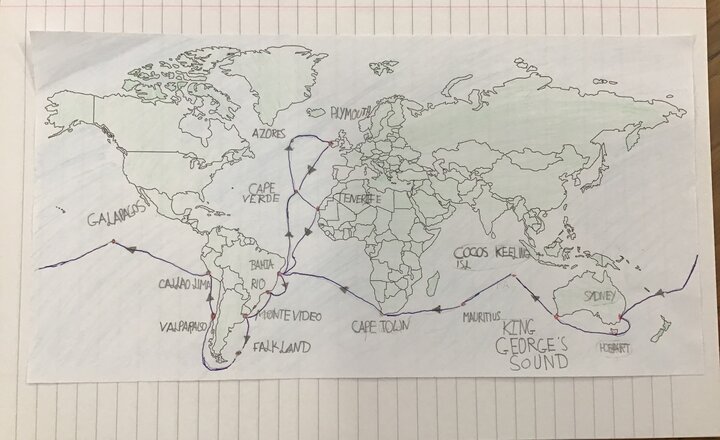 PLYMOUTH
AZORES
CAPE
VERDE
TENERIFE
GALAPAGOS
BAHIA
RIO
CALLAO LIMA
VALPARAISO
MONTEVIDEO
FALKLAND
CAPE TOWN
COCOS KEELING
ISL
MAURITIUS
KING
GEORGE'S
SOUND
SYDNEY
HOBART